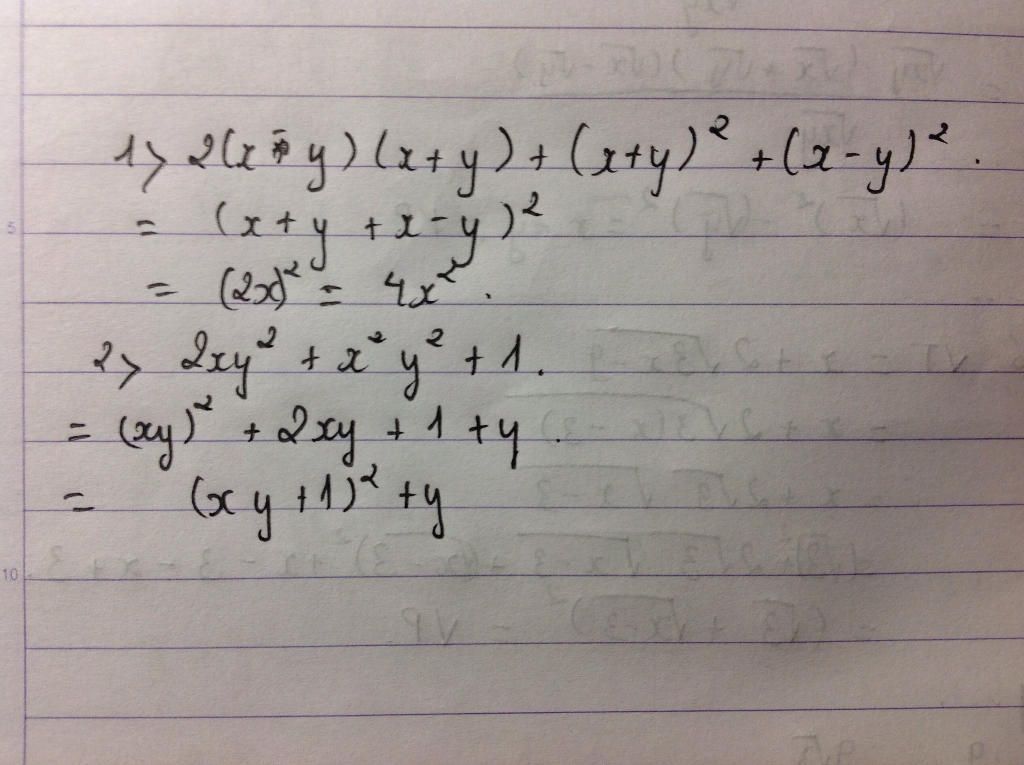 1> 2(x - y)(x + y) + (x+y)² + (x - y)².
= (x + y + x - y)²
= (2x)² = 4x².
2> 2xy² + x²y² + 1.
= (xy)² + 2xy + 1 + y.
= (xy + 1)² + y
5
10